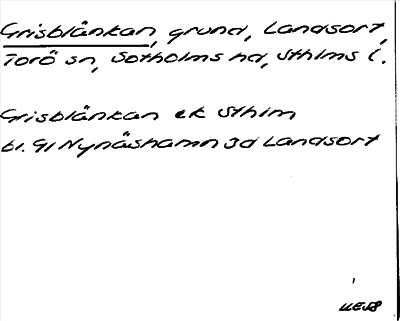 Grisblänkan, grund, Landsort,
Torö sn, Sotholms hd, Sthlms l.
Grisblänkan ek Sthlm
bl. 91 Nynäshamn 3d Landsort